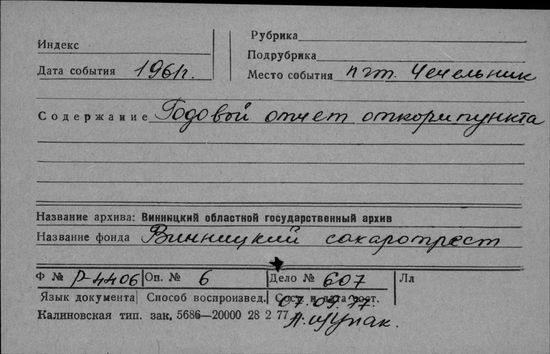 Индекс
Рубрика
Подрубрика
Дата события 1961г.
Место события пгт. Чечельник
Содержание Годовой отчет откормпункта
Название архива: Винницкий областной государственный архив
Название фонда Винницкий сахаротрест
Ф № Р-4406 Оп. № 6 Дело № 607 Лл
Язык документа Способ воспроизвед. Сост. и дата сост.
07.09.77.
Калиновская тип. зак. 5686—20000 28 2 77